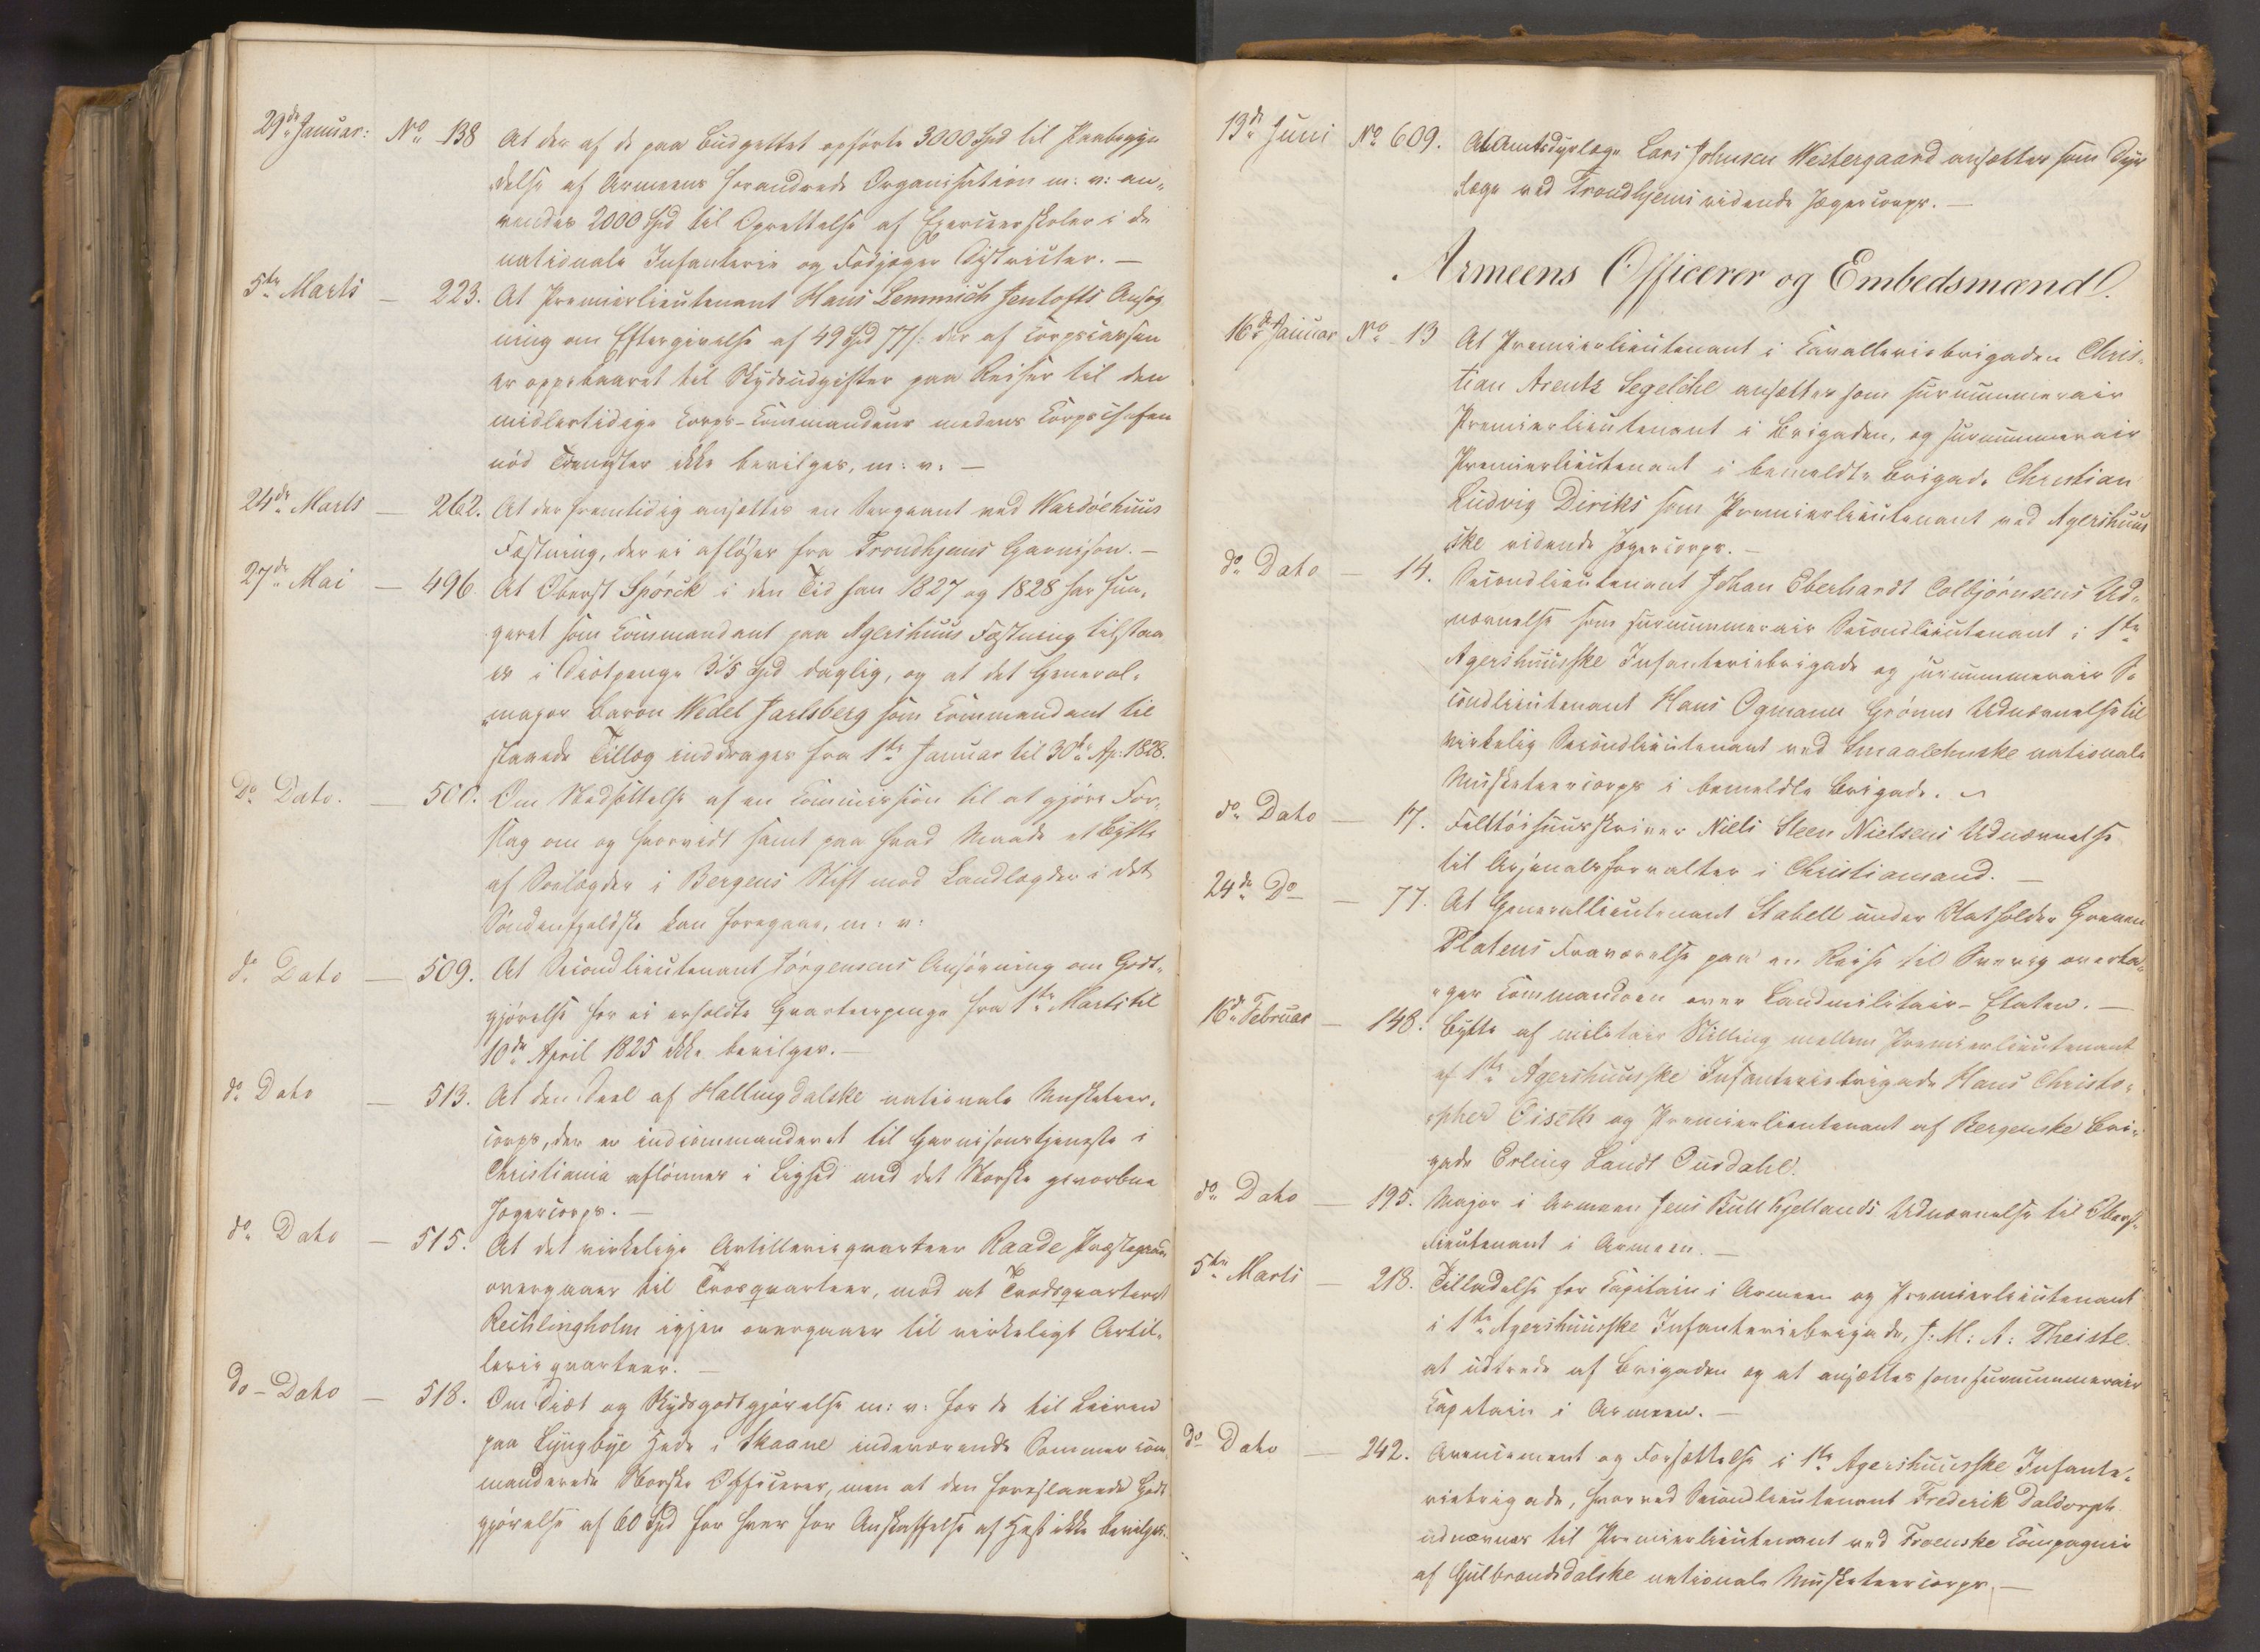 29de Januar: No 138 At der af de paa Budgettet opførte 3000 Spd til Paabegyn
delse af Armeens forandrede Organisation m: v: an-
vendes 2000 Spd til Oprettelse af Exerceerskoler i de
nationale Infanterie og Fodjæger Districter. —
5te Marts — 223. At Premierlieutenant Hans Lemmich Jentofts Ansøg
ning om Eftergivelse af 49 Spd 77 /: der af Corpscassen
er oppebaaret til Skydsudgifter paa Reiser til den
midlertidige Corps-Commandeur medens Corpschefen
ikke bevilges, m: v. —
24de Marts — 262. At der fremtidig ansættes en Sergeant ved Wardøehuus
Fæstning, der ei afløses fra Trondhjems Garnison. —
27de Mai — 496. At Oberst Spørck i den Tid han 1827 og 1828 har fun-
geret som Commandant paa Agershuus Fæstning tilstaa
es i Diætpenge 3/5 Spd daglig, og at det General-
major Baron Wedel Jarlsberg som Commandant til
staaede Tillæg inddrages fra 1ste Januar til 30te Ap: 1828.
Do Dato. — 500. Om Nedsættelse af en Commission til at gjøre For-
slag om og hvorvidt samt paa hvad Maade et Bytte
af Sølægder i Bergens Stift mod Landlægder i det
Søndenfjeldske kan foregaae, m: v:
do Dato — 509. At Secondlieutenant Jørgensens Ansøgning om Godt-
gjørelse for ei erholdte Qvarteerpenge fra 1ste Marts til
10de April 1825 ikke bevilges. —
do Dato — 513. At den Deel af Hallingdalske nationale Musketeer-
corps, der er indcommanderet til Garnisonstjeneste i
Christiania aflønnes i Lighed med det Norske gevorbne
Jægercorps. —
do Dato — 515. At det virkelige Artillerieqvarteer Raade Præstegield
overgaaer til Trosqvarteer, mod at Trodsqvarteret
Reichlingholm igjen overgaaer til virkeligt Artil-
lerieqvarteer. —
do — Dato — 518. Om Diæt og Skydsgodtgjørelse m: v: for de til Leiren
paa Lyngbye Hede i Skaane indeværende Sommer com
manderede Norske Officerer, men at den foreslaaede Godt
gjørelse af 60 Spd for hver for Anskaffelse af Hest ikke bevilges.
19de Juni No 609. At Amtsdyrlæge Lars Johnsen Westergaard ansættes som Dyr
læge ved Trondhjems ridende Jægercorps. —
Armeens Officerer og Embedsmænd.
16de Januar No 13 At Premierlieutenant i Cavalleriebrigaden Chris-
tian Arentz Segelche ansættes som surnummerair
Premierlieutenant i Brigaden, og surnummerair
Premierlieutenant i bemeldte Brigade Christian
Ludvig Diriks som Premierlieutenant ved Agershuus
ske ridende Jægercorps. —
do Dato — 14. Secondlieutenant Johan Eberhardt Colbjørnsens Ud-
nævnelse som surnummerair Secondlieutenant i 1ste
Agershuusske Infanteriebrigade og surnummerair Se
condlieutenant Hans Ogmann Grønns Udnævnelse til
virkelig Secondlieutenant ved Smaalehnske nationale
Musketeercorps i bemeldte Brigade.
do Dato — 17. Felttøihuusskriver Niels Steen Nielsens Udnævnelse
til Arsenalsforvalter i Christiansand. —
24de Do — 77. At Generallieutenant Stabell under Statholder Greven
Platens Fraværelse paa en Reise til Sverrig overta-
ger Commandoen over Landmilitair-Etaten. —
16de Februar — 148. Bytte af militair Stilling mellem Premierlieutenant
af 1ste Agershuusske Infanteriebrigade Hans Christo-
pher Oiseth og Premierlieutenant af Bergenske Bri-
gade Erling Landt Ousdahl.
do Dato — 195. Major i Armeen Jens Bull Kjellands Udnævnelse til Oberst
lieutenant i Armeen. —
5te Marts — 218. Tilladelse for Capitain i Armeen og Premierlieutenant
i 1ste Agershuusske Infanteriebrigade, J: M: A: Theiste
at udtræde af Brigaden og at ansættes som surnummerair
Capitain i Armeen. —
do Dato — 242. Avencement og Forsættelse i 1ste Agershuusske Infante-
riebrigade, hvorved Secondlieutenant Frederik Daldorph
udnævnes til Premierlieutenant ved Froenske Compagnie
af Gulbrandsdalske nationale Musketeercorps. —